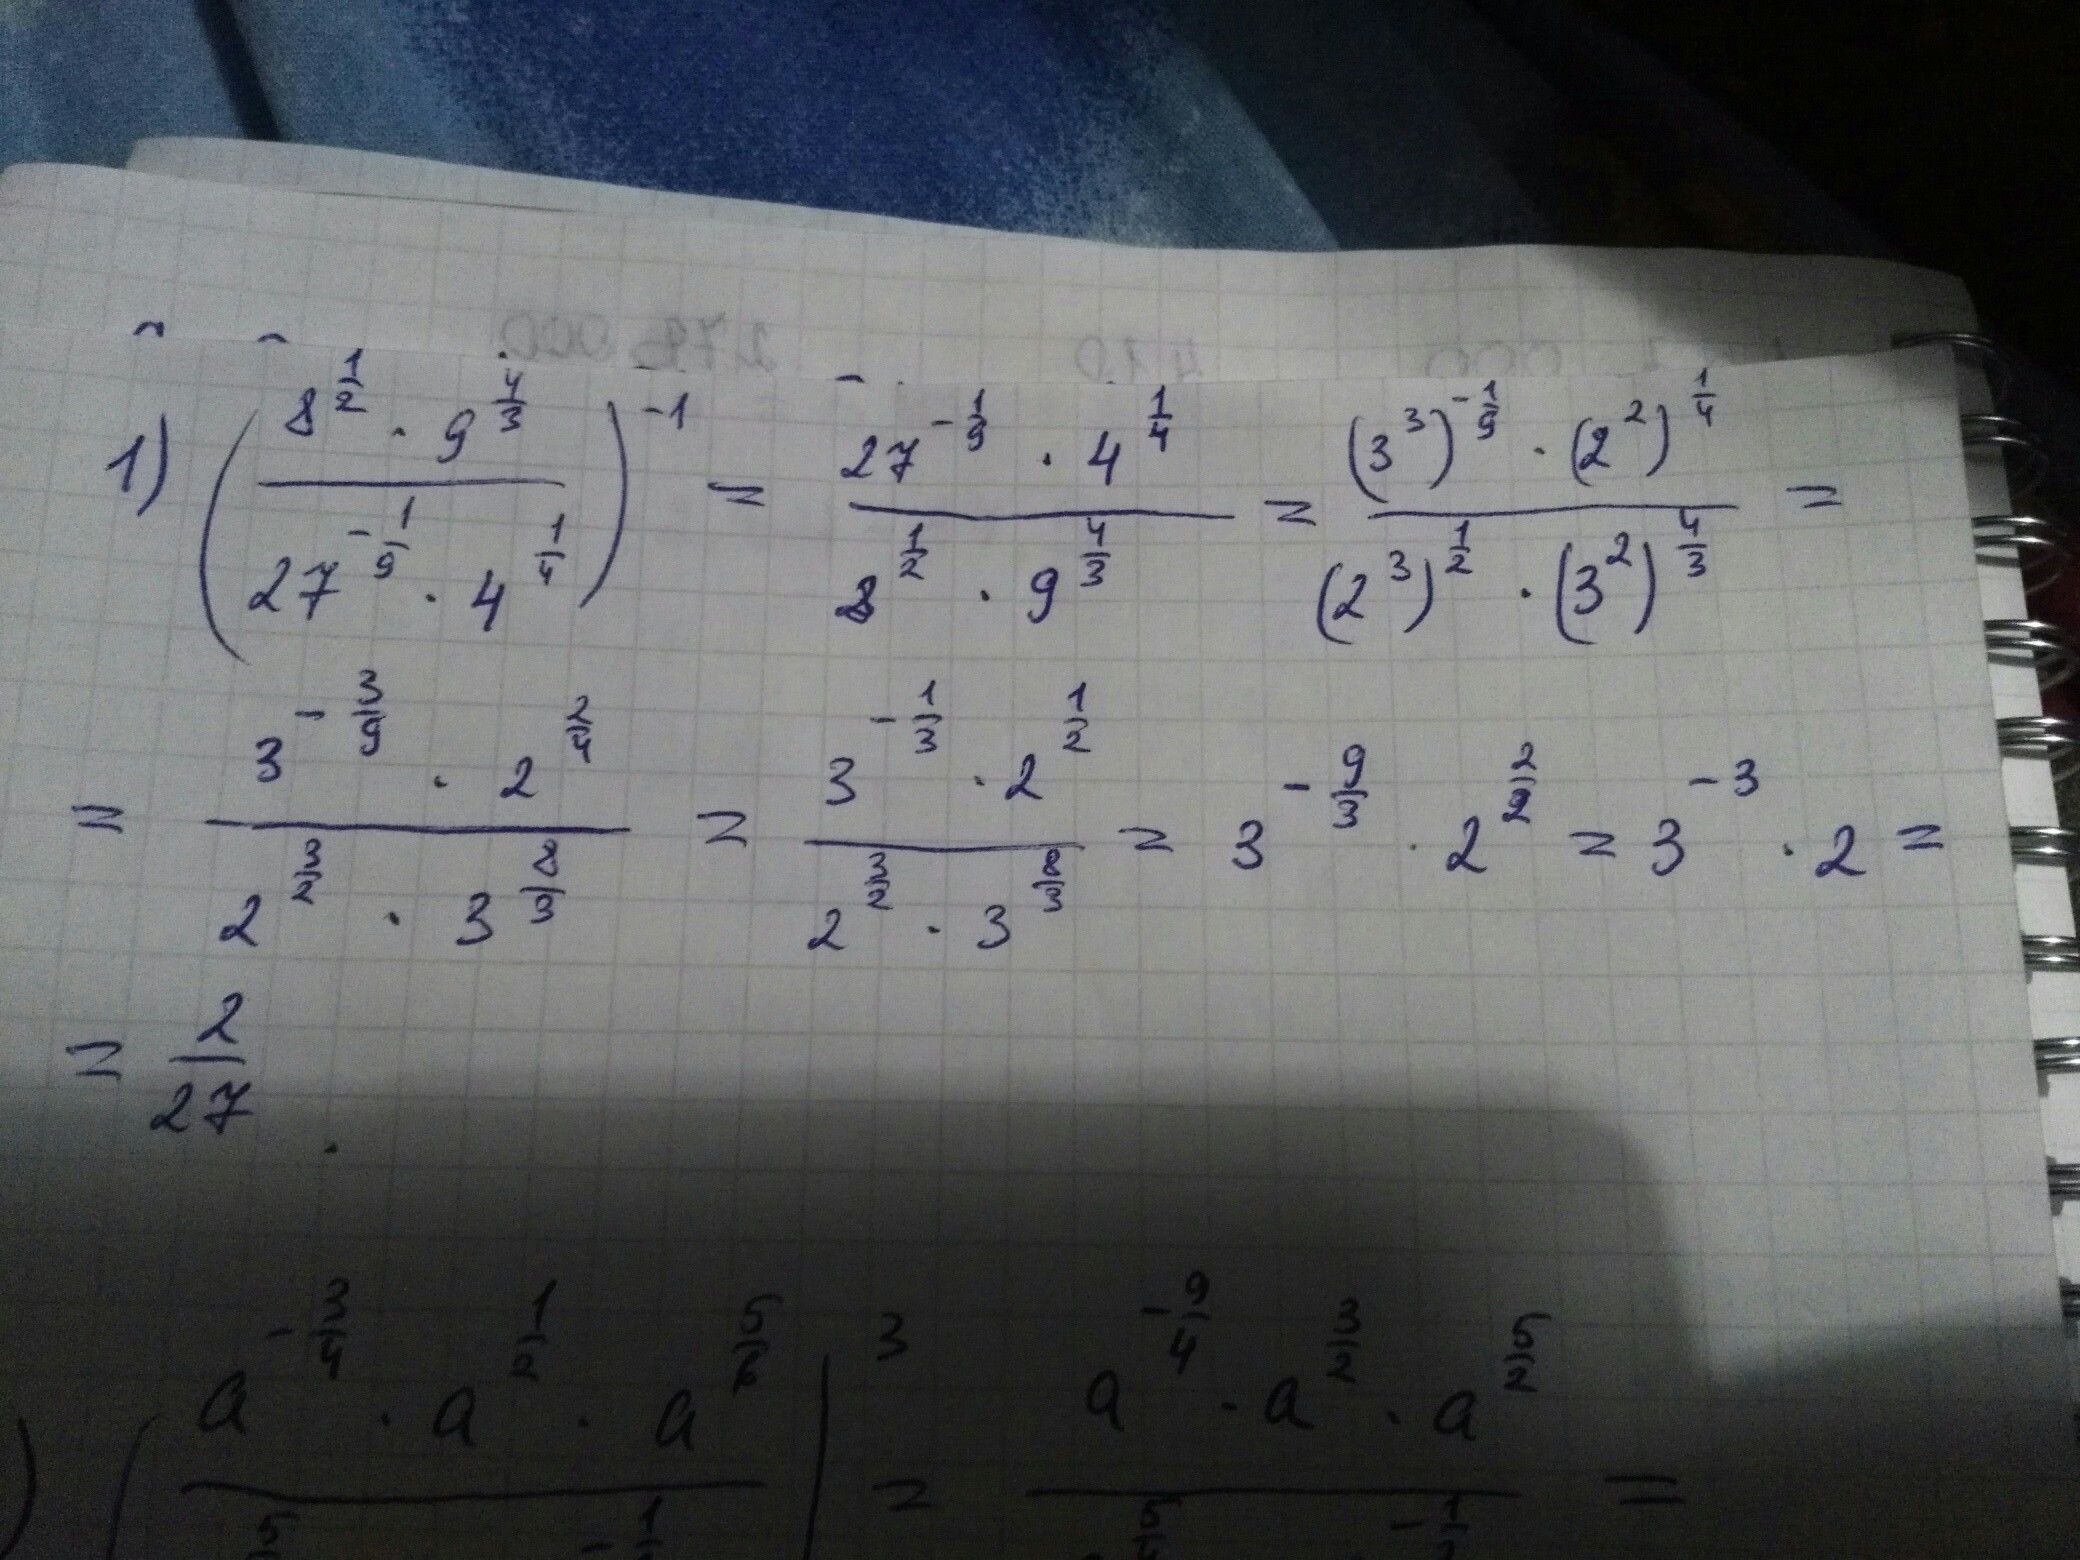 1) (8^(1/2) · 9^(4/3) / 27^(-1/9) · 4^(1/4))^(-1) = 27^(-1/9) · 4^(1/4) / 8^(1/2) · 9^(4/3) = (3^3)^(-1/9) · (2^2)^(1/4) / (2^3)^(1/2) · (3^2)^(4/3) =
= 3^(-3/9) · 2^(2/4) / 2^(3/2) · 3^(8/3) = 3^(-1/3) · 2^(1/2) / 2^(3/2) · 3^(8/3) = 3^(-9/3) · 2^(2/2) = 3^(-3) · 2 =
= 2/27 .
) (a^(-3/4) · a^(1/2) · a^(5/6) )^3 = a^(-9/4) · a^(3/2) · a^(5/2) =